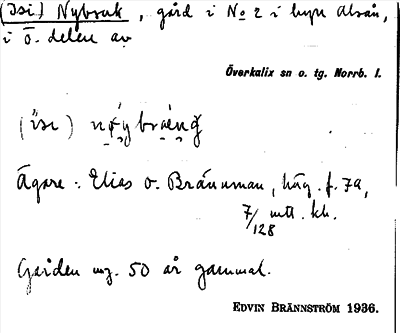 (Isi) Nybruk, gård i No 2 i byn Alsån,
i ö. delen av
Överkalix sn o. tg. Norrb. l.
Ägare: Elias o. Brännman, häg. f. 79,
7/128 mtl. kh.
Gården ung. 50 år gammal.
EDVIN BRÄNNSTRÖM 1936.